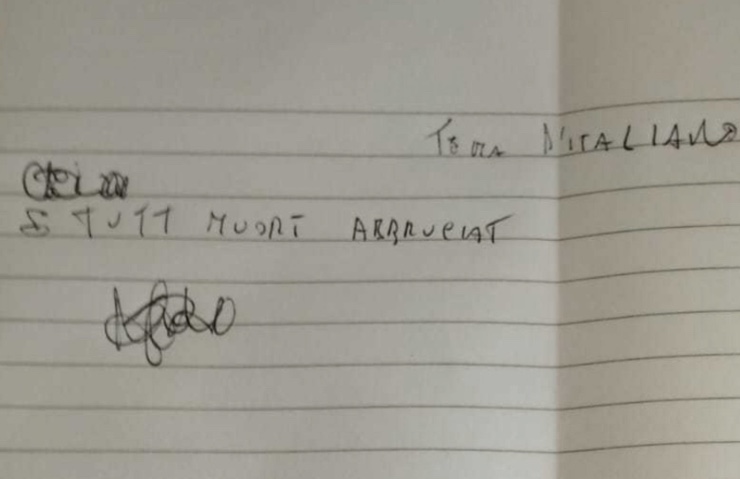 Tema D'ITALIANO
E TUTT MUORT ABBRUCIAT